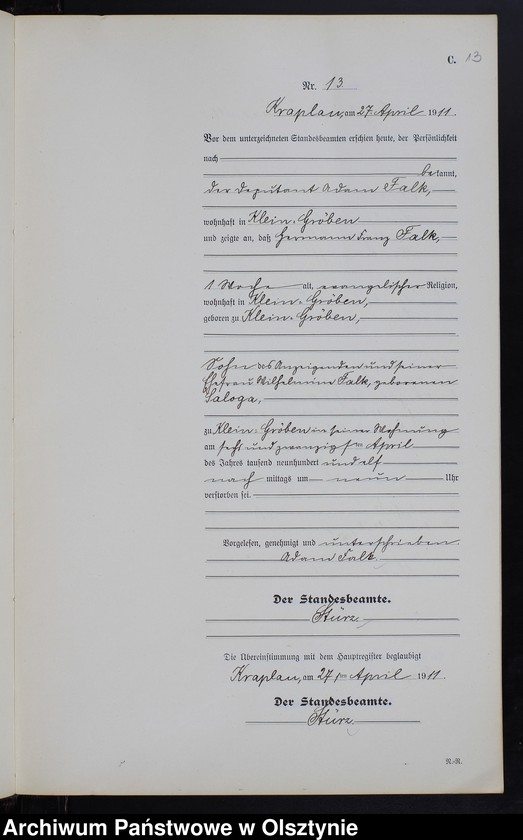 C. 13
Nr. 13
Kraplau, am 27. April 1911.
Vor dem unterzeichneten Standesbeamten erschien heute, der Persönlichkeit
nach
bekannt,
der Deputant Adam Falk,
wohnhaft in Klein-Gröben
und zeigte an, daß Hermann Franz Falk,
1 Woche alt, evangelischer Religion,
wohnhaft in Klein-Gröben,
geboren zu Klein-Gröben,
Sohn des Anzeigenden und seiner
Ehefrau Wilhelmine Falk, geborenen
Saloga,
zu Klein-Gröben in seiner Wohnung
am sechs und zwanzigsten April
des Jahres tausend neunhundert und elf
nach mittags um neun Uhr
verstorben sei.
Vorgelesen, genehmigt und unterschrieben
Adam Falk.
Der Standesbeamte.
Stürz
Die Übereinstimmung mit dem Hauptregister beglaubigt
Kraplau, am 27ten April 1911.
Der Standesbeamte.
Stürz.
N.-R.
Archiwum Państwowe w Olsztynie